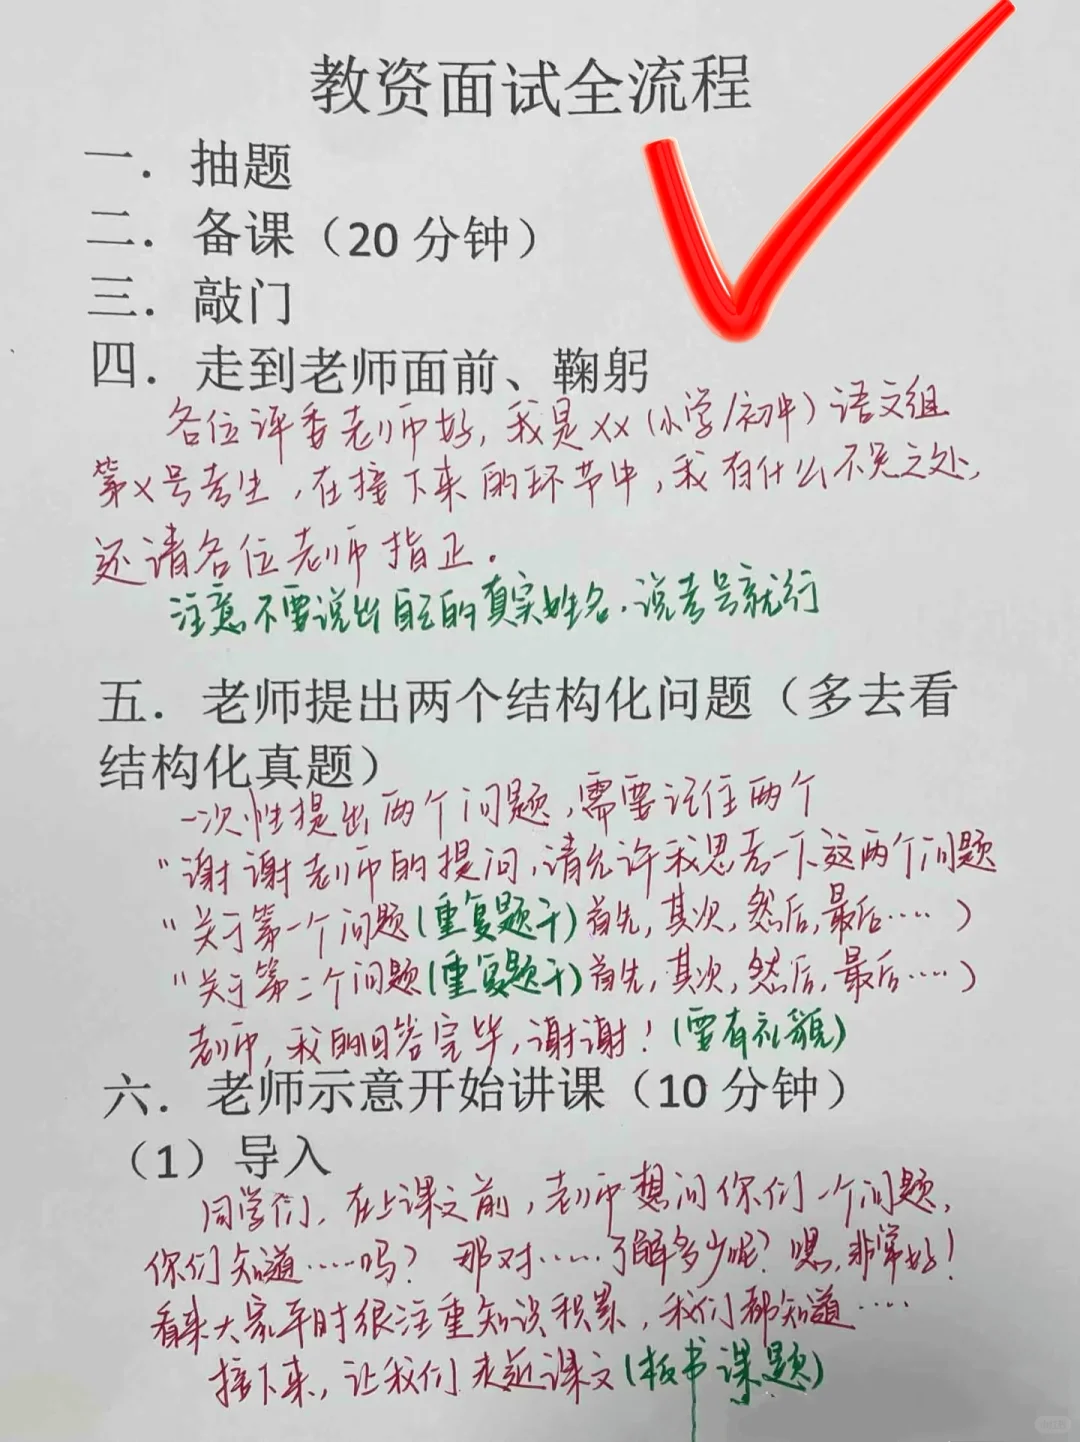 教资面试全流程
一．抽题
二．备课（20 分钟）
三．敲门
四．走到老师面前、鞠躬
各位评委老师好，我是XX（小学/初中）语文组
第X号考生，在接下来的环节中，我有什么不足之处，
还请各位老师指正.
注意不要说出自己的真实姓名，说考号就行
五．老师提出两个结构化问题（多去看
结构化真题）
一次性提出两个问题，需要记住两个
“谢谢老师的提问，请允许我思考一下这两个问题
“关于第一个问题(重复题干)首先，其次，然后，最后……）
“关于第二个问题(重复题干)首先，其次，然后，最后……）
老师，我的回答完毕，谢谢！(要有礼貌)
六．老师示意开始讲课（10 分钟）
（1）导入
同学们，在上课文前，老师想问你们一个问题，
你们知道……吗？那对……了解多少呢？嗯，非常好！
看来大家平时很注重知识积累，我们都知道……
接下来，让我们走近课文(板书课题)